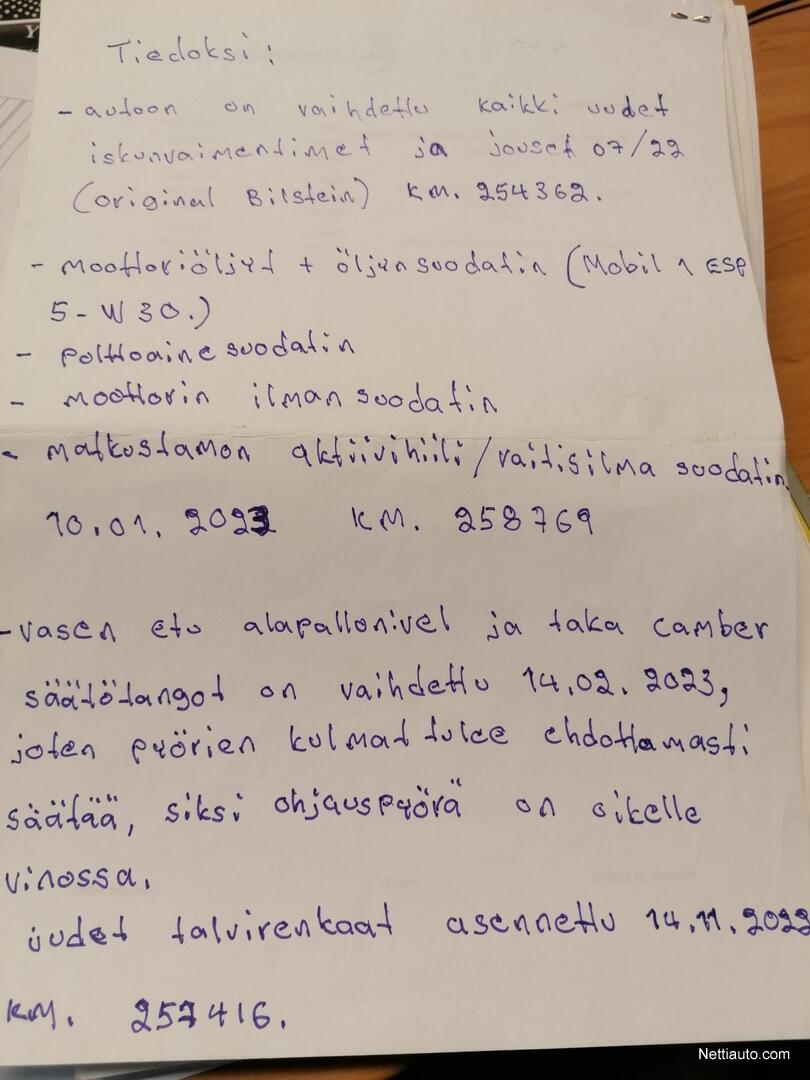 Tiedoksi:
- autoon on vaihdettu kaikki uudet
iskunvaimentimet ja jouset 07/22
(original Bilstein) KM. 254362.
- moottoriöljyt + öljynsuodatin (Mobil 1 ESP
5-W30.)
- polttoainesuodatin
- moottorin ilmansuodatin
- matkustamon aktiivihiili/raitisilma suodatin.
10.01.2023 KM. 258769
- vasen etu alapallonivel ja taka camber
säätötangot on vaihdettu 14.02.2023,
joten pyörien kulmat tulee ehdottamasti
säätää, siksi ohjauspyörä on oikelle
vinossa.
uudet talvirenkaat asennettu 14.11.2022
KM. 257416.
Nettiauto.com